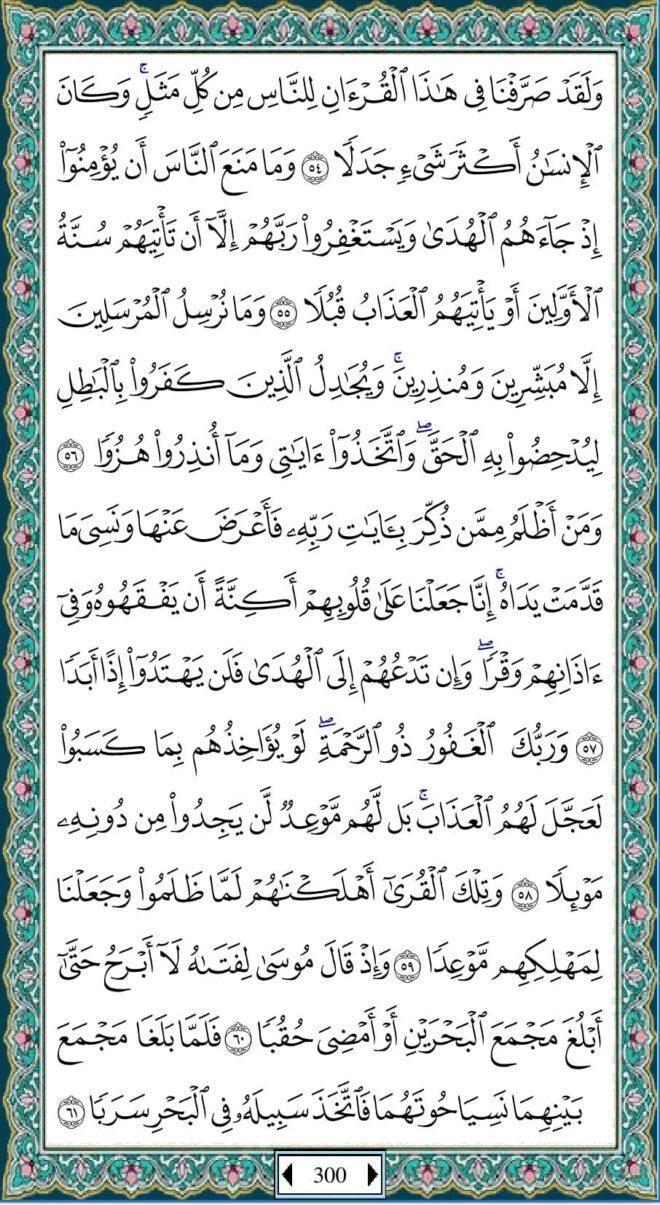 وَلَقَدْ صَرَّفْنَا فِى هَٰذَا ٱلْقُرْءَانِ لِلنَّاسِ مِن كُلِّ مَثَلٍۢ ۚ وَكَانَ
ٱلْإِنسَٰنُ أَكْثَرَ شَىْءٍۢ جَدَلًۭا ٥٤ وَمَا مَنَعَ ٱلنَّاسَ أَن يُؤْمِنُوٓا۟
إِذْ جَآءَهُمُ ٱلْهُدَىٰ وَيَسْتَغْفِرُوا۟ رَبَّهُمْ إِلَّآ أَن تَأْتِيَهُمْ سُنَّةُ
ٱلْأَوَّلِينَ أَوْ يَأْتِيَهُمُ ٱلْعَذَابُ قُبُلًۭا ٥٥ وَمَا نُرْسِلُ ٱلْمُرْسَلِينَ
إِلَّا مُبَشِّرِينَ وَمُنذِرِينَ ۚ وَيُجَٰدِلُ ٱلَّذِينَ كَفَرُوا۟ بِٱلْبَٰطِلِ
لِيُدْحِضُوا۟ بِهِ ٱلْحَقَّ ۖ وَٱتَّخَذُوٓا۟ ءَايَٰتِى وَمَآ أُنذِرُوا۟ هُزُوًۭا ٥٦
وَمَنْ أَظْلَمُ مِمَّن ذُكِّرَ بِـَٔايَٰتِ رَبِّهِۦ فَأَعْرَضَ عَنْهَا وَنَسِىَ مَا
قَدَّمَتْ يَدَاهُ ۚ إِنَّا جَعَلْنَا عَلَىٰ قُلُوبِهِمْ أَكِنَّةً أَن يَفْقَهُوهُ وَفِىٓ
ءَاذَانِهِمْ وَقْرًۭا ۖ وَإِن تَدْعُهُمْ إِلَى ٱلْهُدَىٰ فَلَن يَهْتَدُوٓا۟ إِذًا أَبَدًۭا
٥٧ وَرَبُّكَ ٱلْغَفُورُ ذُو ٱلرَّحْمَةِ ۖ لَوْ يُؤَاخِذُهُم بِمَا كَسَبُوا۟
لَعَجَّلَ لَهُمُ ٱلْعَذَابَ ۚ بَل لَّهُم مَّوْعِدٌۭ لَّن يَجِدُوا۟ مِن دُونِهِۦ
مَوْئِلًۭا ٥٨ وَتِلْكَ ٱلْقُرَىٰٓ أَهْلَكْنَٰهُمْ لَمَّا ظَلَمُوا۟ وَجَعَلْنَا
لِمَهْلِكِهِم مَّوْعِدًۭا ٥٩ وَإِذْ قَالَ مُوسَىٰ لِفَتَىٰهُ لَآ أَبْرَحُ حَتَّىٰٓ
أَبْلُغَ مَجْمَعَ ٱلْبَحْرَيْنِ أَوْ أَمْضِىَ حُقُبًۭا ٦٠ فَلَمَّا بَلَغَا مَجْمَعَ
بَيْنِهِمَا نَسِيَا حُوتَهُمَا فَٱتَّخَذَ سَبِيلَهُۥ فِى ٱلْبَحْرِ سَرَبًۭا ٦١
300